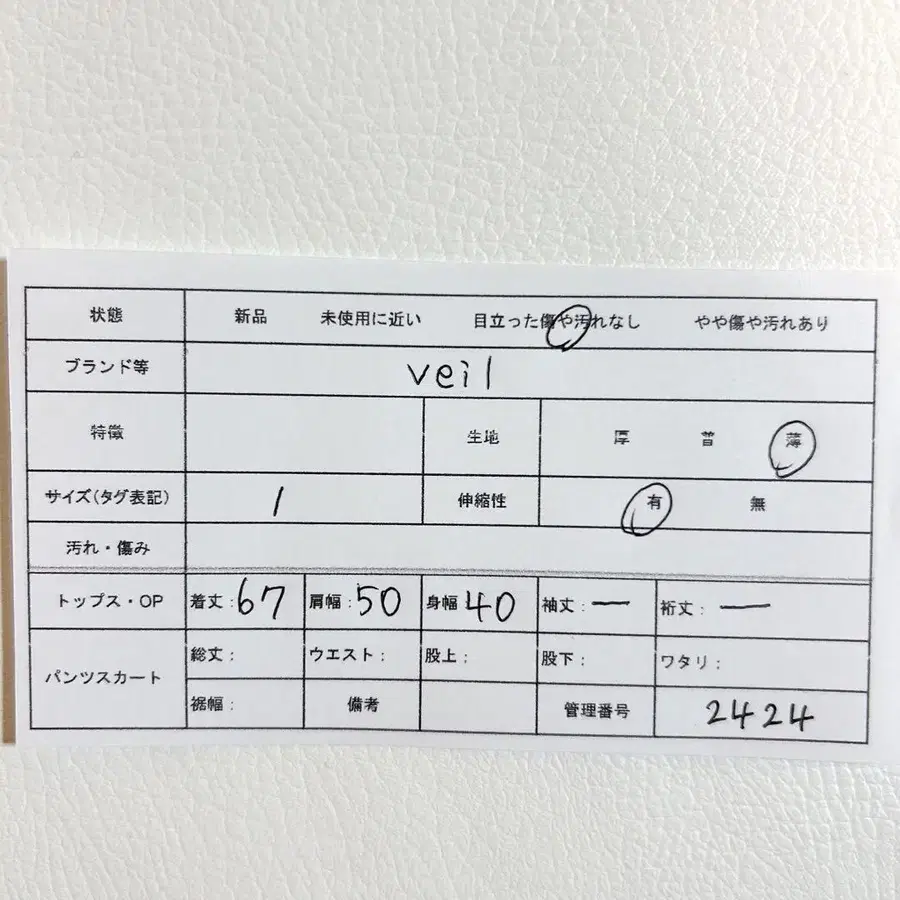 状態 新品 未使用に近い 目立った傷や汚れなし やや傷や汚れあり
ブランド等 veil
特徴 生地 厚 普 薄
サイズ(タグ表記) 1 伸縮性 有 無
汚れ・傷み
トップス・OP 着丈:67 肩幅:50 身幅:40 袖丈:ー 裄丈:ー
パンツスカート 総丈: ウエスト: 股上: 股下: ワタリ:
裾幅: 備考 管理番号 2424